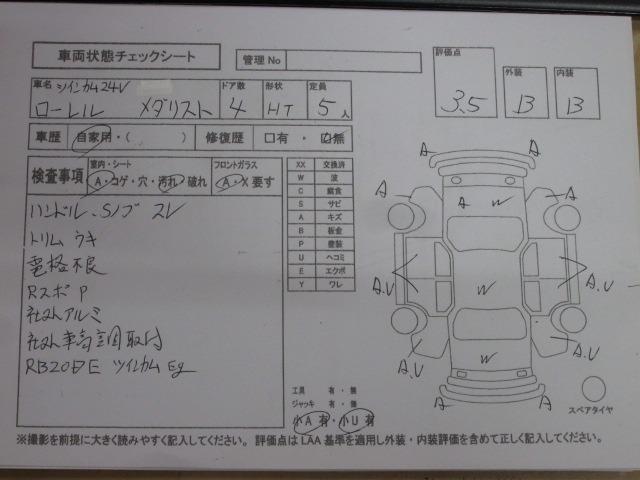 車両状態チェックシート
管理No
評価点 3.5
外装 B
内装 B
車名 ツインカム24V
ローレル メダリスト
ドア数 4
形状 HT
定員 5人
車歴 自家用・( ) 修復歴 口有・口無
検査事項
室内・シート
A・コゲ・穴・汚れ・破れ
フロントガラス
A・X要す
ハンドル、Sノブ スレ
トリム ウキ
電格不良
Rスポ P
社外アルミ
社外車高調取付
RB20DE ツインカム Eg
XX 交換済
W 波
C 腐食
S サビ
A キズ
B 板金
P 塗装
U ヘコミ
E エクボ
Y ワレ
A A
A A W A
A.U A.U
W
A.U W A.U
A A
工具 有・無
ジャッキ 有・無
小A有・小U有
スペアタイヤ
※撮影を前提に大きく読みやすく記入してください。評価点はLAA基準を適用し外装・内装評価を含めて正しく記入してください。